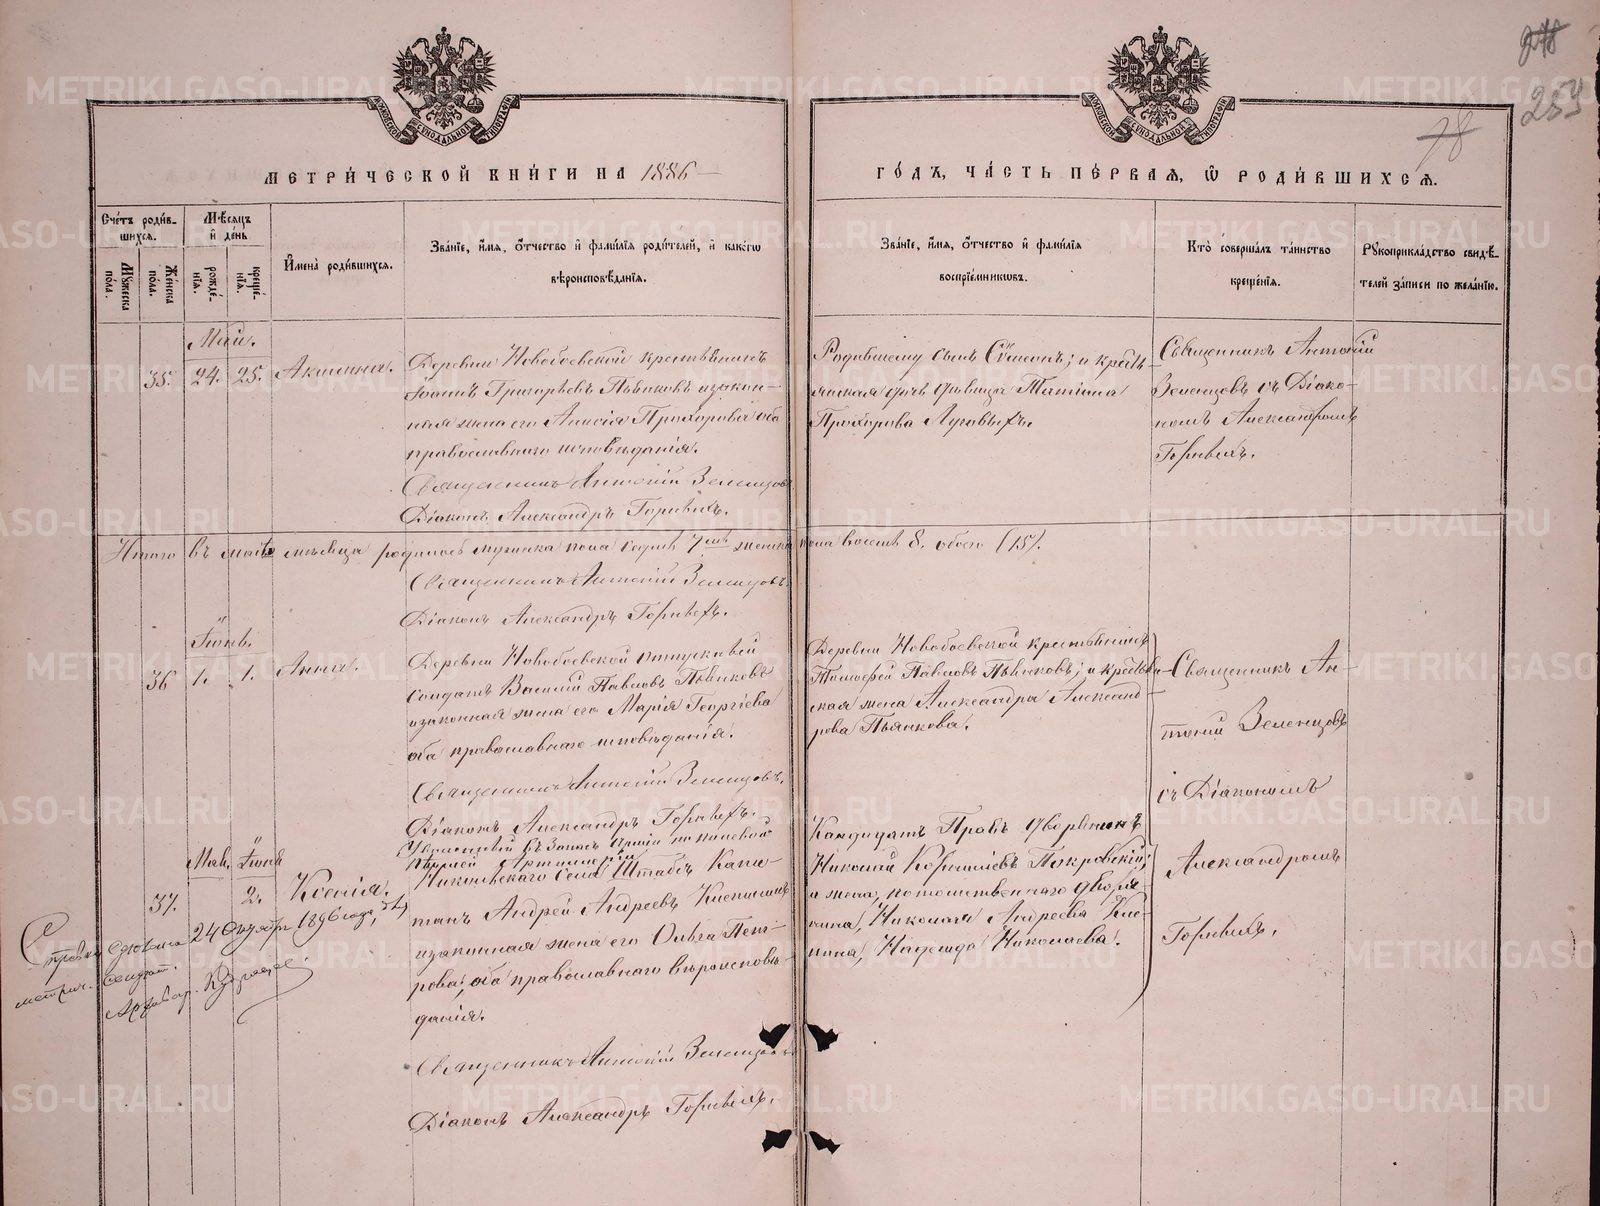 254
78
МЕТРИЧЕСКОЙ КНИГИ НА 1886
ГОДЪ, ЧАСТЬ ПЕРВАЯ, Ѡ РОДИВШИХСЯ.
Счетъ родившихся.
Мужеска пола.
Женска пола.
Мѣсяцъ и день
рожденія.
крещенія.
Имена родившихся.
Званіе, имя, отчество и фамилія родителей, и какогѡ
вѣроисповѣданія.
Званіе, имя, отчество и фамилія
воспріемниковъ.
Кто совершалъ таинство
крещенія.
Рукоприкладство свидѣ-
телей записи по желанію.
Май.
35. 24. 25. Аксинья.
Деревни Новобоевской крестьянинъ
Іоаннъ Григорьевъ Пьянковъ и закон-
ная жена его Прохорова оба
православнаго исповѣданія.
Священникъ Антоній Зеленцовъ
Діаконъ Александръ Горныхъ.
Родившему сынъ Сѵмеонъ; и кресть-
янская дочь дѣвица Татіана
Прохорова Луговыхъ.
Священникъ Антоній
Зеленцовъ съ Діако-
номъ Александромъ
Горныхъ.
Итого въ маѣ мѣсяцѣ родилось мужска пола семь 7 женска пола восемь 8. обоего (15).
Священникъ Антоній Зеленцовъ.
Діаконъ Александръ Горныхъ.
Іюнь.
36 1. 1. Анна.
Деревни Новобоевской отпускной
солдатъ Василій Павловъ Пьянковъ
и законная жена его Марія Георгіева
оба православнаго исповѣданія.
Священникъ Антоній Зеленцовъ.
Діаконъ Александръ Горныхъ.
Деревни Новобоевской крестьянинъ
Тимофей Павловъ Пьянковъ; и крестьян-
ская жена Александра Александ-
рова Пьянкова.
Священникъ Ан-
тоній Зеленцовъ
съ Діакономъ
Александромъ
Горныхъ.
Май. Іюнь
37. 2. Ксенія.
Уволенный въ запасъ Арміи по полевой
пѣшей Артиллеріи
Никольскаго Села Штабсъ Капи-
танъ Андрей Андреевъ
и законная жена его Ольга Пет-
рова; оба православнаго вѣроисповѣ-
данія.
Священникъ Антоній Зеленцовъ
Діаконъ Александръ Горныхъ.
Кандидатъ Правъ Дворянинъ
Николай Покровскій;
и жена потомственнаго дворя-
нина, Николая Андреева
Надежда Николаева.
24 Октября 1896 года,
метрич.
METRIKI.GASO-URAL.RU